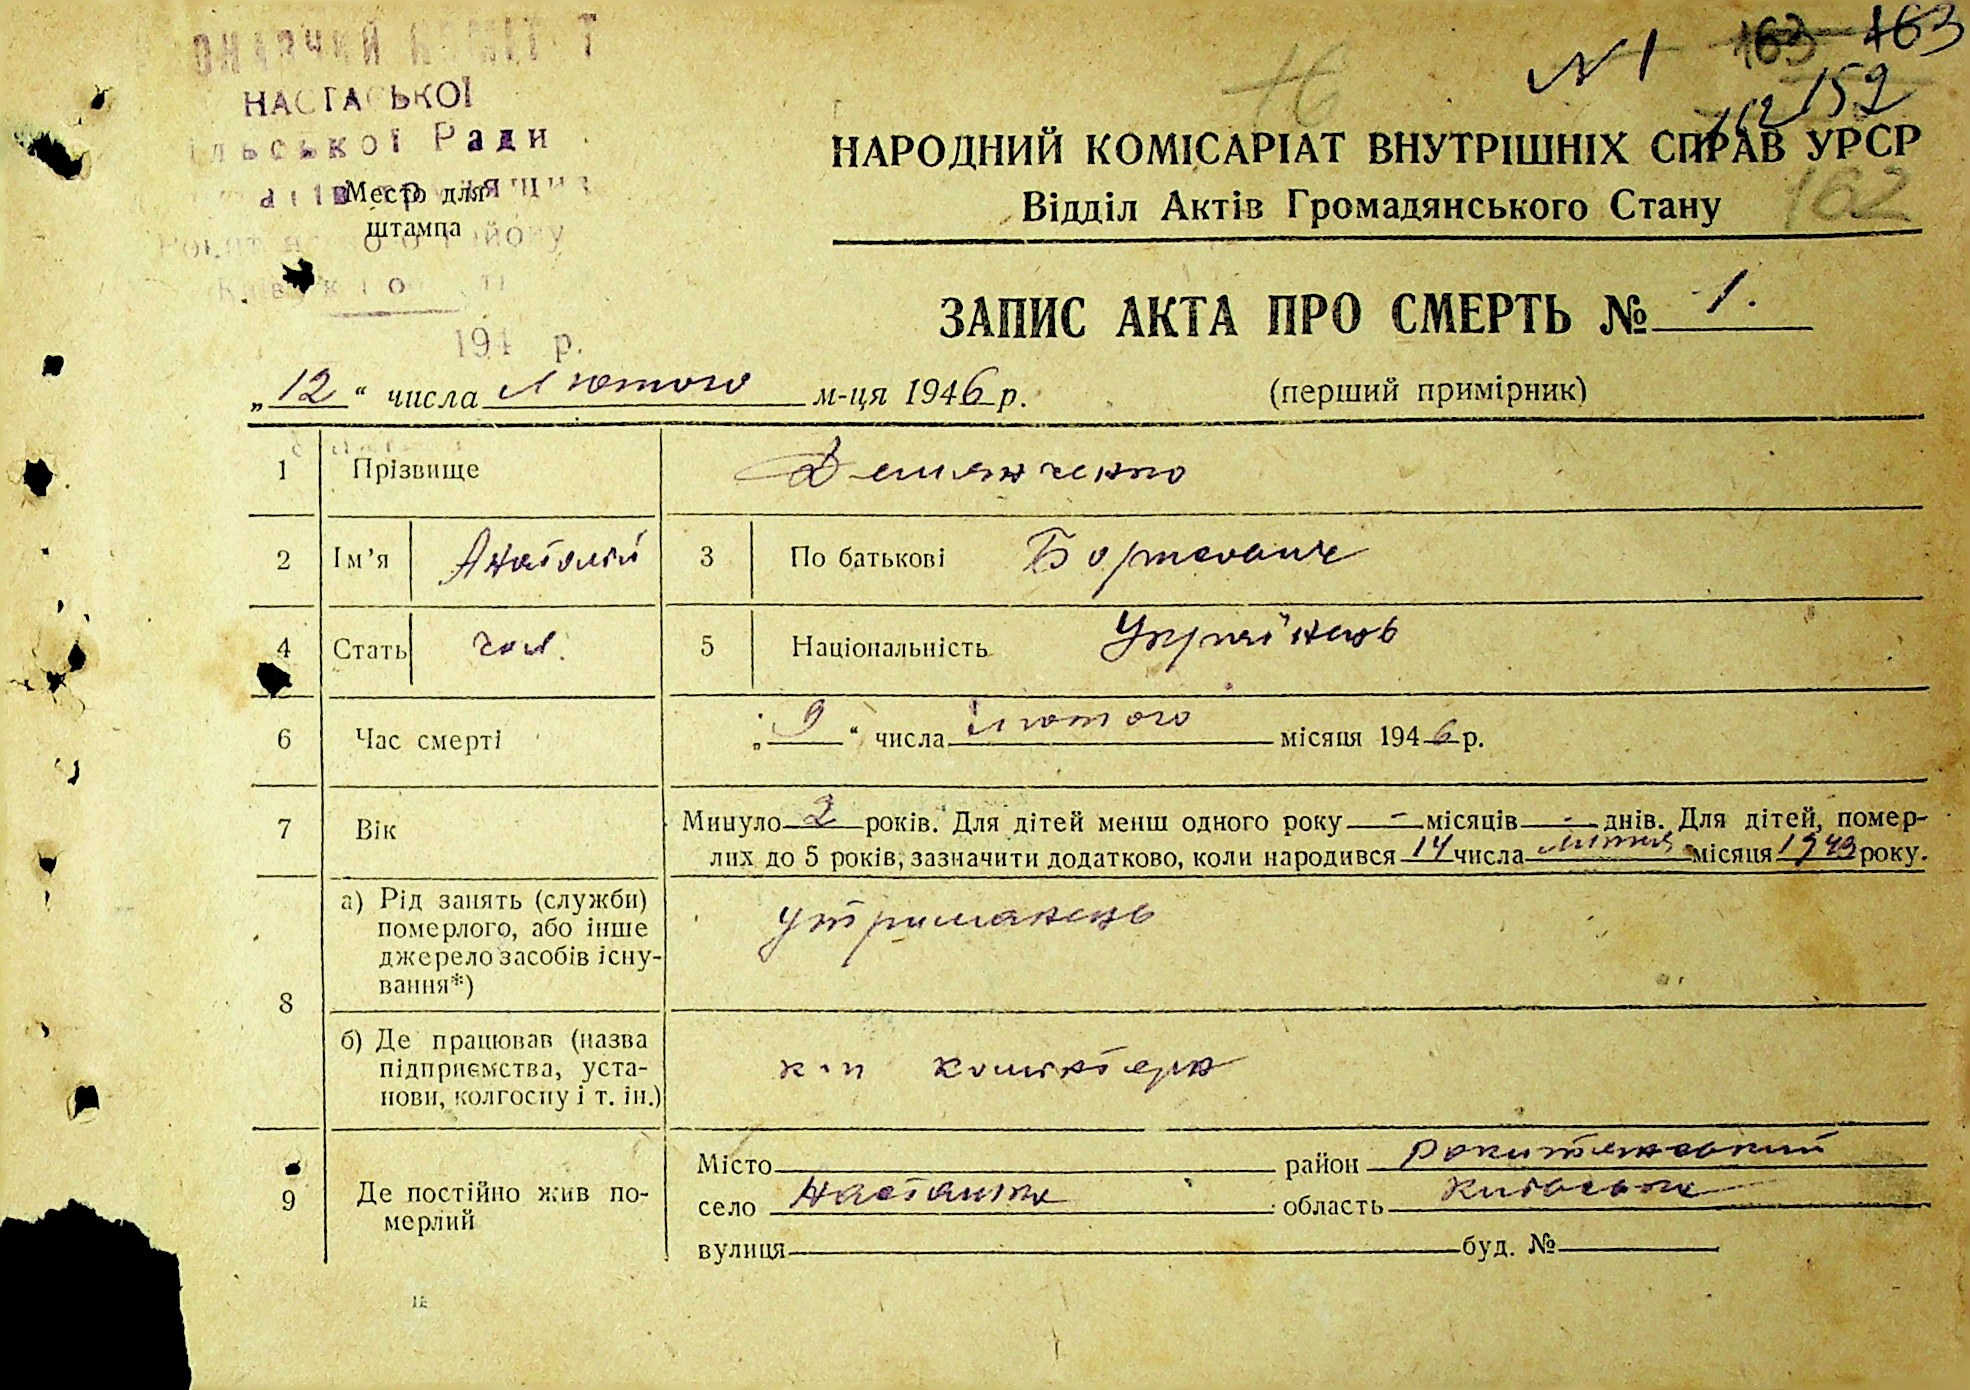 НАСТАСЬКОЇ
Ради
Место для
штампа
194 р.
№ 1 163 163
16 162 152
НАРОДНИЙ КОМІСАРІАТ ВНУТРІШНІХ СПРАВ УРСР
Відділ Актів Громадянського Стану
162
ЗАПИС АКТА ПРО СМЕРТЬ № 1.
„12“ числа Лютого м-ця 1946 р. (перший примірник)
1 Прізвище Демянченко
2 Ім'я Анатолій 3 По батькові
4 Стать чол. 5 Національність Українець
6 Час смерті „9“ числа лютого місяця 1946 р.
7 Вік Минуло 2 років. Для дітей менш одного року - місяців - днів. Для дітей, помер-
лих до 5 років, зазначити додатково, коли народився 14 числа місяця 1943 року.
8 а) Рід занять (служби)
померлого, або інше
джерело засобів існу-
вання*)
утриманець
б) Де працював (назва
підприємства, уста-
нови, колгоспу і т. ін.)
9 Де постійно жив по-
мерлий
Місто район Рокитянський
село Насташка область Київська
вулиця буд. №